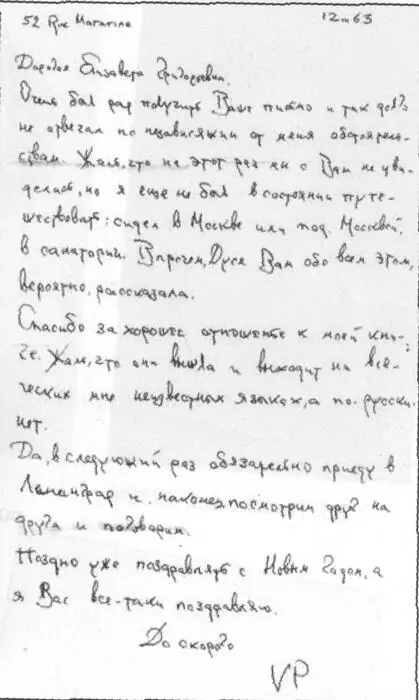 52 Rue Mazarine
12 III 63
Дорогая Елизавета Григорьевна,
Очень был рад получить Ваше письмо и так долго
не отвечал по независящим от меня обстоятель-
ствам. Жаль, что на этот раз мы с Вами не уви-
делись, но я еще не был в состоянии путе-
шествовать: сидел в Москве или под Москвой
в санатории. Впрочем, Дуся Вам обо всем этом,
вероятно, рассказала.
Спасибо за хорошее отношение к моей кни-
ге. Жаль, что она вышла и выходит на вся-
ческих мне неизвестных языках, а по-русски
нет.
Да, в следующий раз обязательно приеду в
Ленинград и наконец посмотрим друг на
друга и поговорим.
Поздно уже поздравлять с Новым Годом, а
я Вас все-таки поздравляю.
До скорого
VP